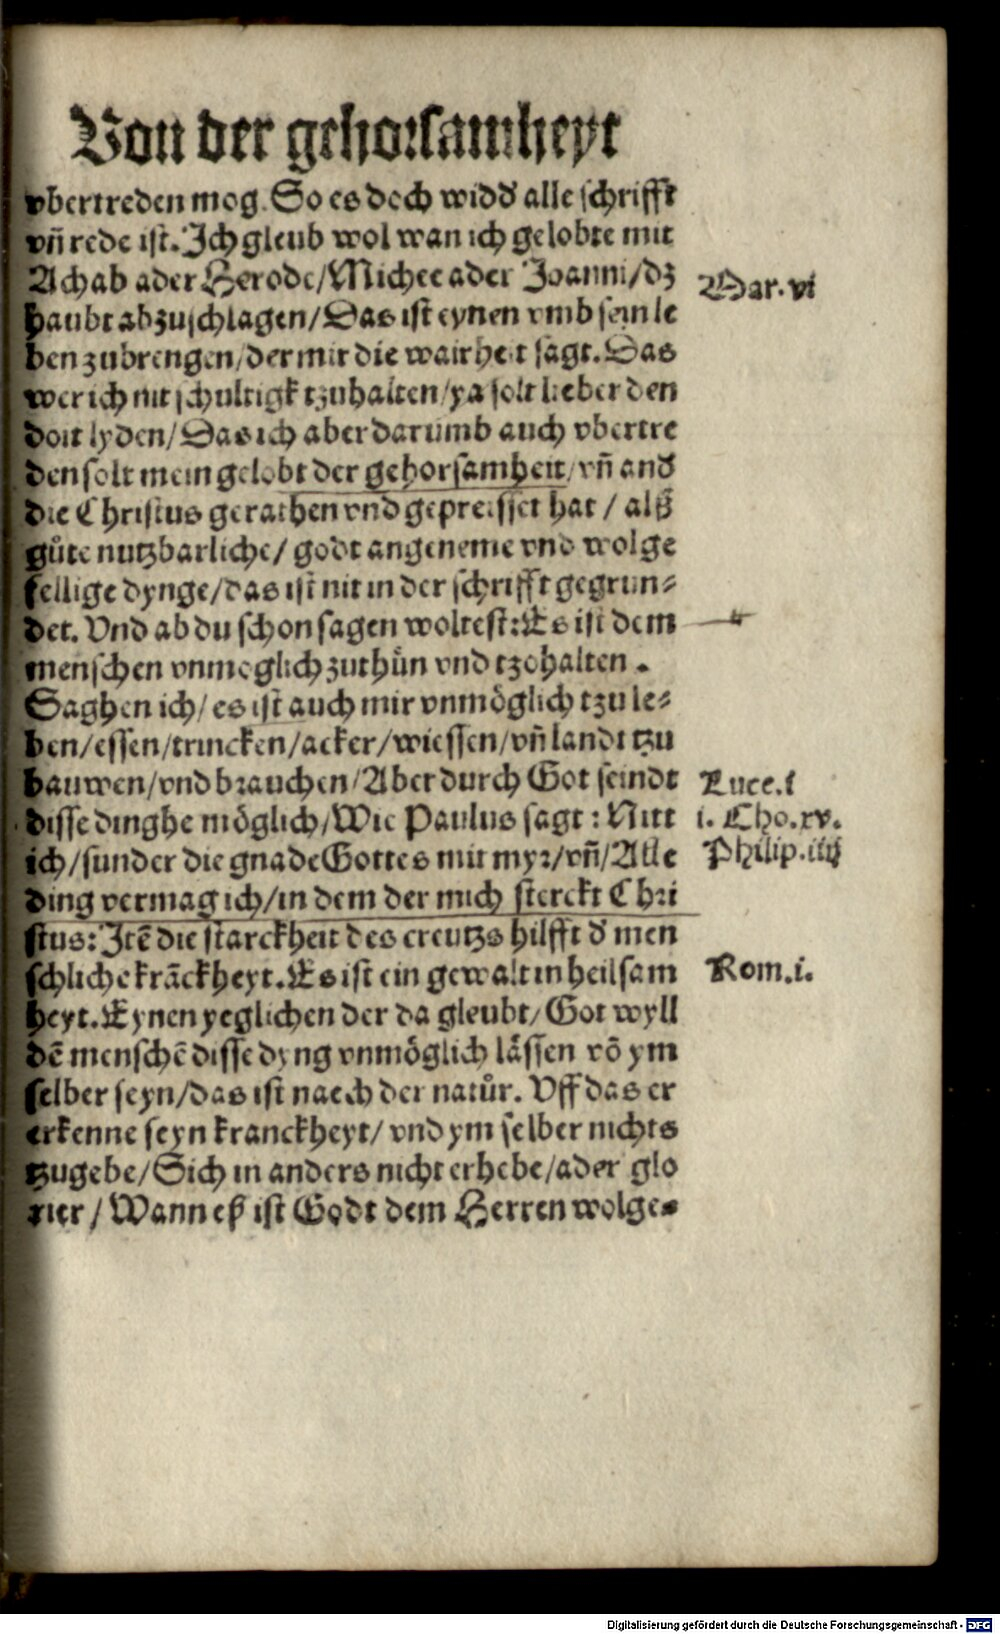 Von der gehorsamheyt
vbertreden mog. So es doch widd̕ alle schrifft
vñ rede ist. Jch gleub wol wan ich gelobte mit
Achab ader Herode/Michee ader Joanni/dz
Mar. vi
haubt abzuschlagen/Das ist eynen vmb sein le
ben zubrengen/der mir die wairheit sagt. Das
wer ich nit schultigk tzuhalten/ya solt lieber den
doit lyden/Das ich aber darumb auch vbertre
den solt mein gelobt der gehorsamheit/vñ and̕
die Christus gerathen vnd gepreisset hat / alß
gůte nutzbarliche/ godt angeneme vnd wolge
fellige dynge/das ist nit in der schrifft gegrun⸗
det. Vnd ab du schon sagen woltest: Es ist dem
menschen vnmoglich zuthůn vnd tzohalten.
Saghen ich/ es ist auch mir vnmöglich tzu le⸗
ben/essen/trincken/acker/wiessen/vñ landt tzu
bauwen/vnd brauchen/Aber durch Got seindt
Luce. i
disse dinghe möglich/Wie Paulus sagt: Nitt
i. Cho. xv.
ich/sunder die gnade Gottes mit myr/vñ/Alle
Philip. iiij
ding vermag ich/in dem der mich sterckt Chri
stus: Jtē die starckheit des creutzs hilfft d̕ men
schliche krāckheyt. Es ist ein gewalt in heilsam
Rom. i.
heyt. Eynen yeglichen der da gleubt/ Got wyll
dē menschē disse dyng vnmöglich lässen vō ym
selber seyn/das ist naech der natůr. Vff das er
erkenne seyn kranckheyt/ vnd ym selber nichts
tzugebe/Sich in anders nicht erhebe/ader glo
rier / Wann eß ist Godt dem Herren wolge⸗
Digitalisierung gefördert durch die Deutsche Forschungsgemeinschaft - DFG